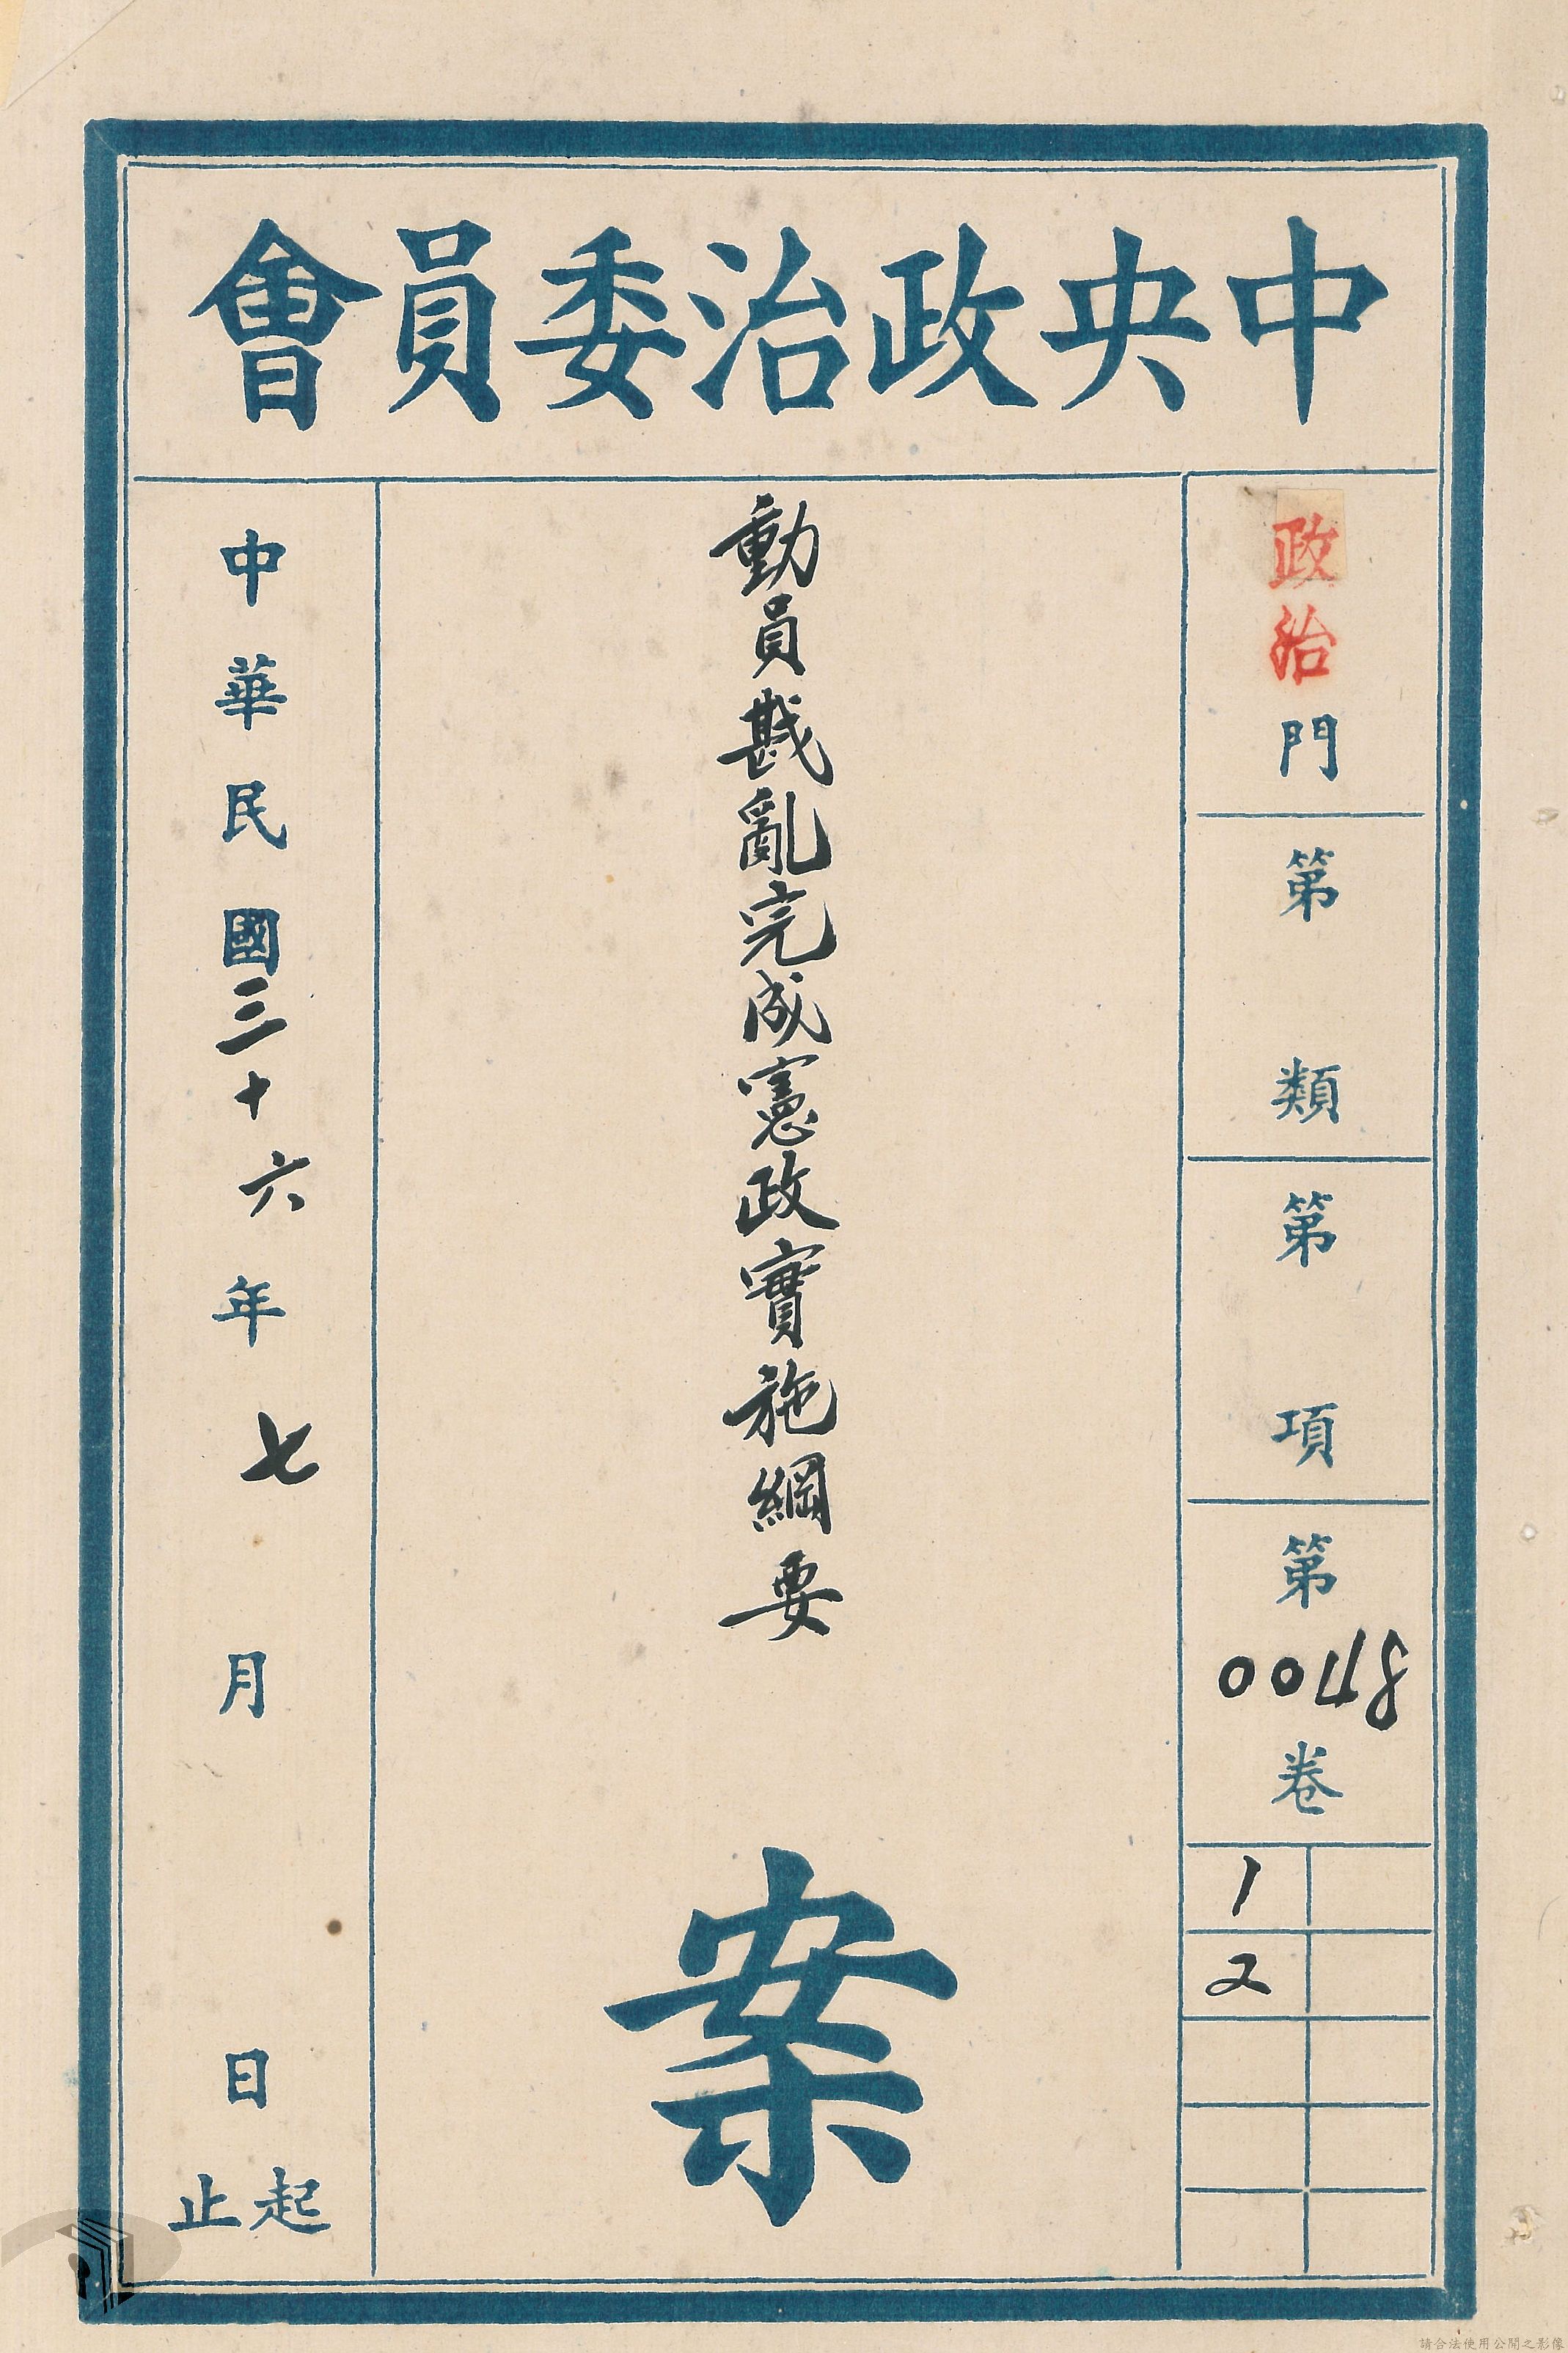 中央政治委員會
政治門
第 類
第 項
第0048卷
1
2
動員戡亂完成憲政實施綱要
案
中華民國三十六年七月 日起止
請合法使用公開之影像